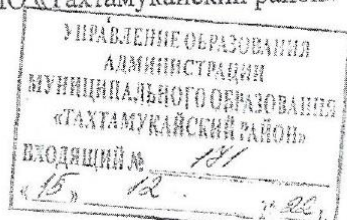 «Тахтамукайский район»
УПРАВЛЕНИЕ ОБРАЗОВАНИЯ
АДМИНИСТРАЦИИ
МУНИЦИПАЛЬНОГО ОБРАЗОВАНИЯ
«ТАХТАМУКАЙСКИЙ РАЙОН»
ВХОДЯЩИЙ № 181
«15» 12. г.